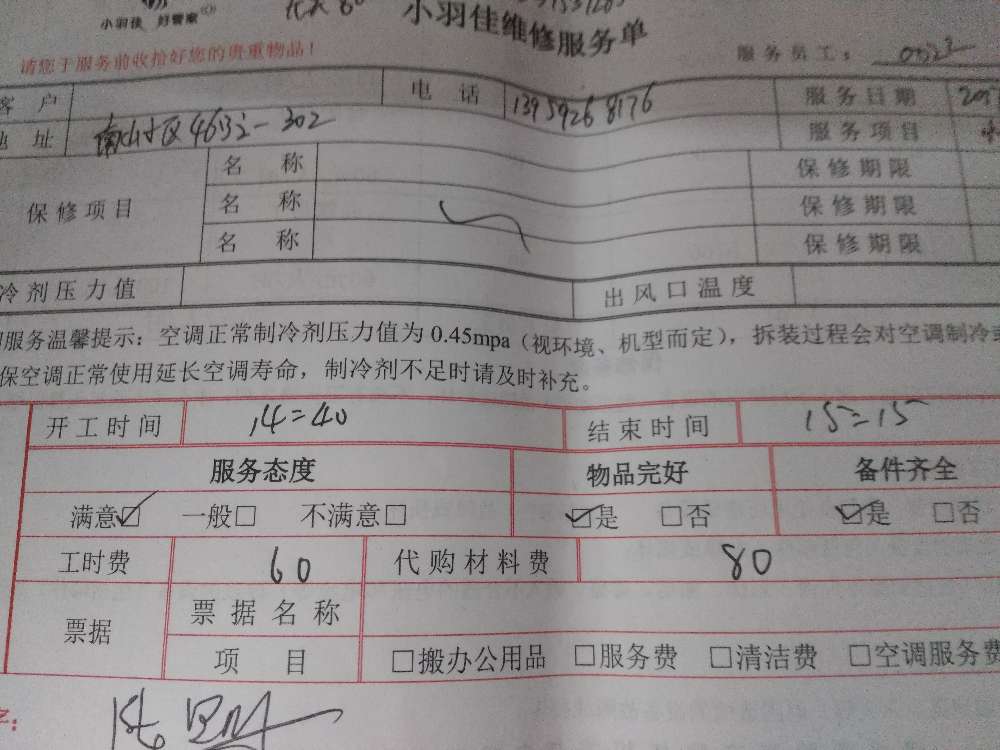 小羽佳 好管家
小羽佳维修服务单
请您于服务前收拾好您的贵重物品！
服务员工： 0523
客户 电话 13959268176 服务日期
地址 服务项目
保修项目 名称 保修期限
名称 保修期限
名称 保修期限
冷剂压力值 出风口温度
服务温馨提示：空调正常制冷剂压力值为 0.45mpa（视环境、机型而定），拆装过程会对空调制冷
保空调正常使用延长空调寿命，制冷剂不足时请及时补充。
开工时间 14=40 结束时间 15=15
服务态度 物品完好 备件齐全
满意☑ 一般□ 不满意□ ☑是 □否 ☑是 □否
工时费 60 代购材料费 80
票据 票据名称
项目 □搬办公用品 □服务费 □清洁费 □空调服务费